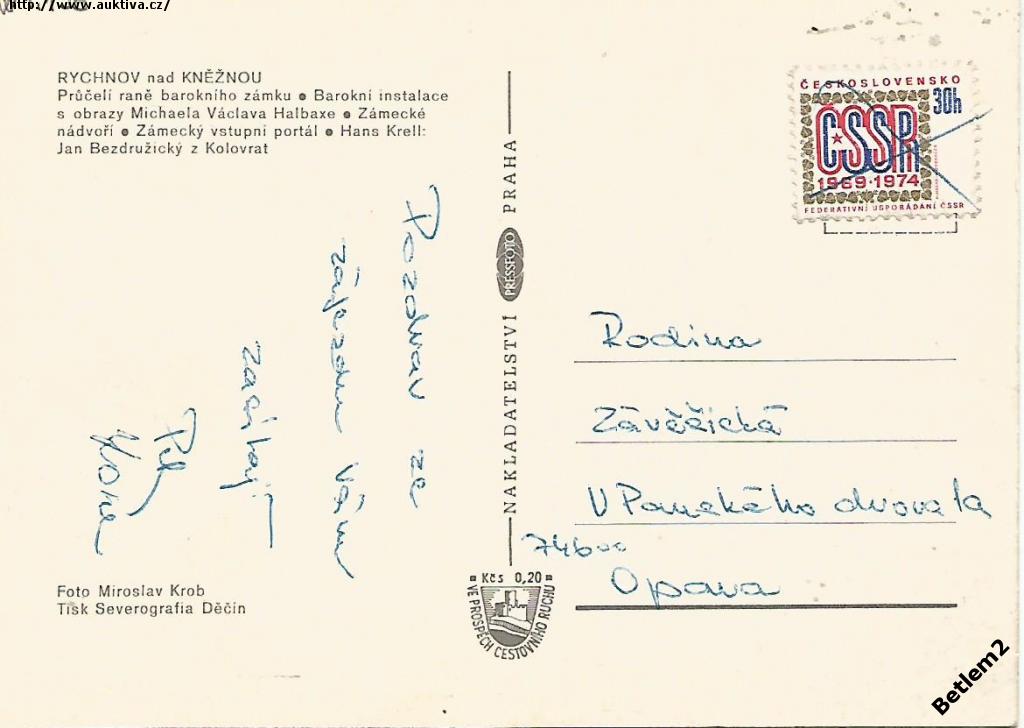 http://www.auktiva.cz/
RYCHNOV nad KNĚŽNOU
Průčelí raně barokního zámku • Barokní instalace
s obrazy Michaela Václava Halbaxe • Zámecké
nádvoří • Zámecký vstupní portál • Hans Krell:
Jan Bezdružický z Kolovrat
Pozdrav ze
zájezdu vám
NAKLADATELSTVÍ PRESSFOTO PRAHA
ČESKOSLOVENSKO
30h
ČSSR
1969·1974
FEDERATIVNÍ USPOŘÁDÁNÍ ČSSR
Rodina
V Panského dvora 1a
74600
Opava
Foto Miroslav Krob
Tisk Severografia Děčín
Kčs 0,20
VE PROSPĚCH CESTOVNÍHO RUCHU
Betlem2